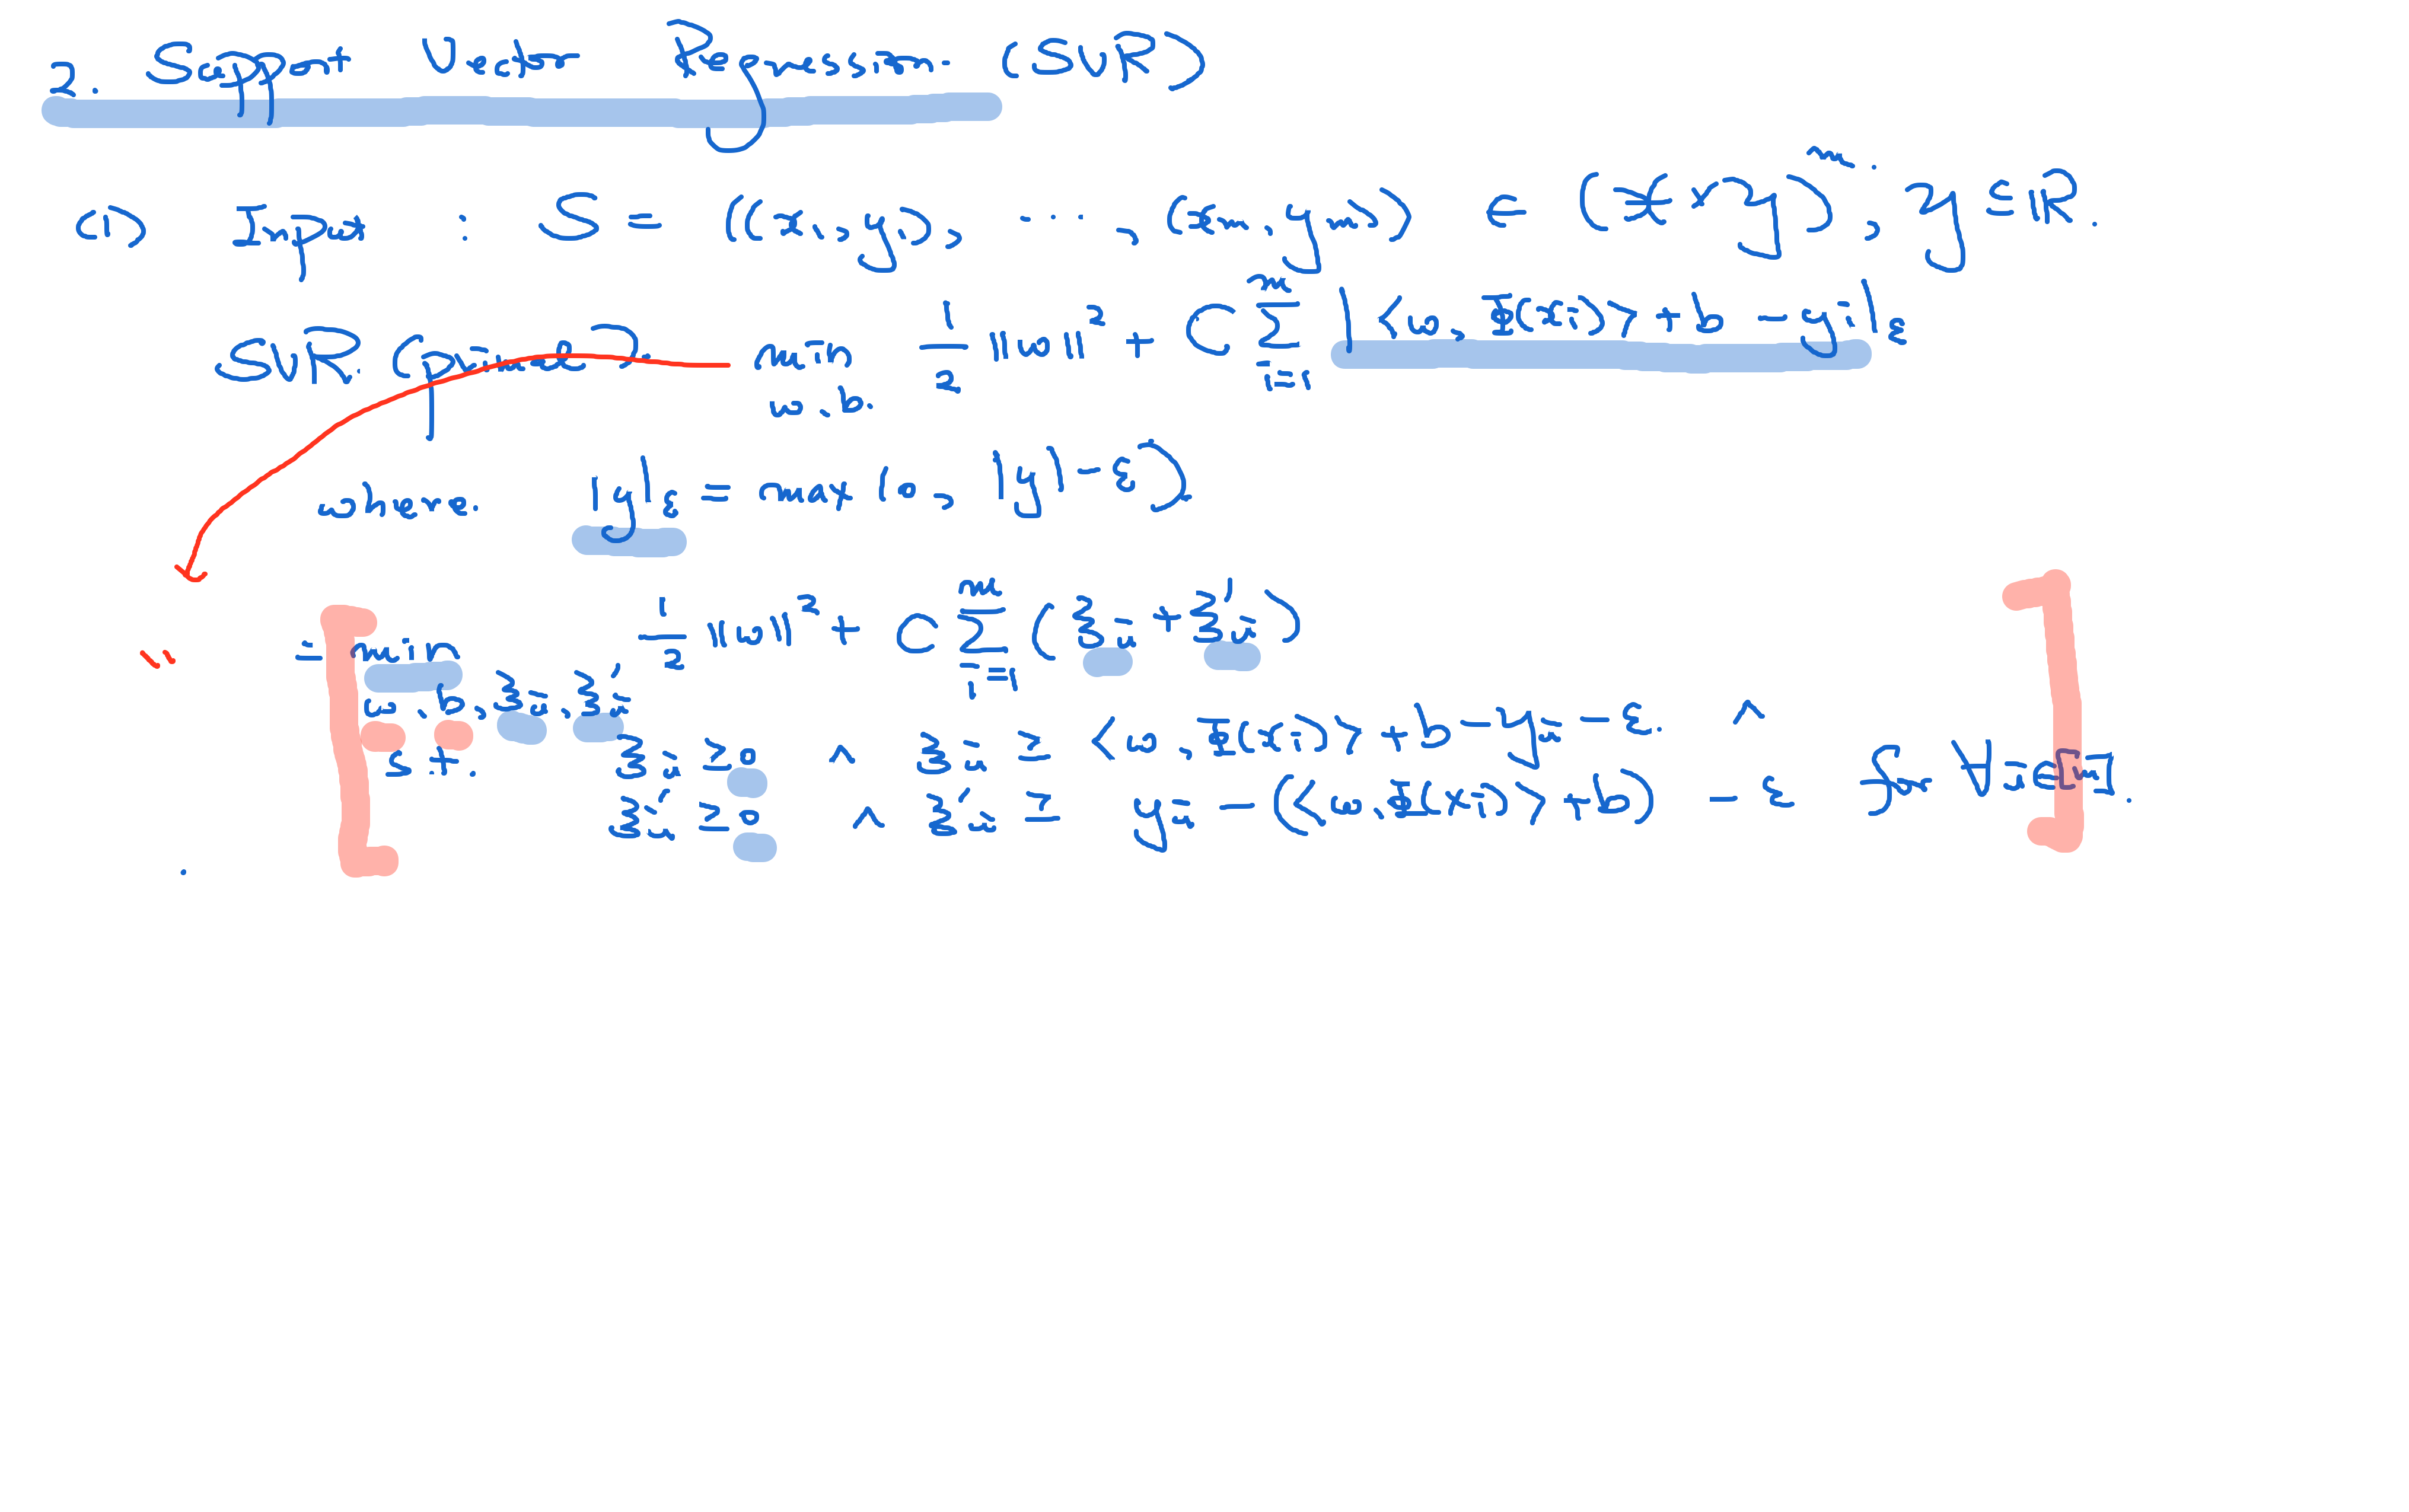 2. Support Vector Regression (SVR)
(1) Input : S = ((x₁, y₁), ... , (xₘ, yₘ)) ∈ (𝒳 × 𝒴)ᵐ. , 𝒴 ⊆ ℝ.
SVR. (primal). min w, b. 1/2 ||w||² + C Σᵢ₌₁ᵐ |<w, Φ(xᵢ)> + b - yᵢ|ε
where. |y|ε = max(0, |y| - ε)
= min w, b, ξᵢ, ξᵢ' 1/2 ||w||² + C Σᵢ₌₁ᵐ (ξᵢ + ξᵢ')
s.t. ξᵢ ≥ 0 ∧ ξᵢ ≥ <w, Φ(xᵢ)> + b - yᵢ - ε. ∧
ξᵢ' ≥ 0 ∧ ξᵢ' ≥ yᵢ - (<w, Φ(xᵢ)> + b) - ε for ∀i∈[m].